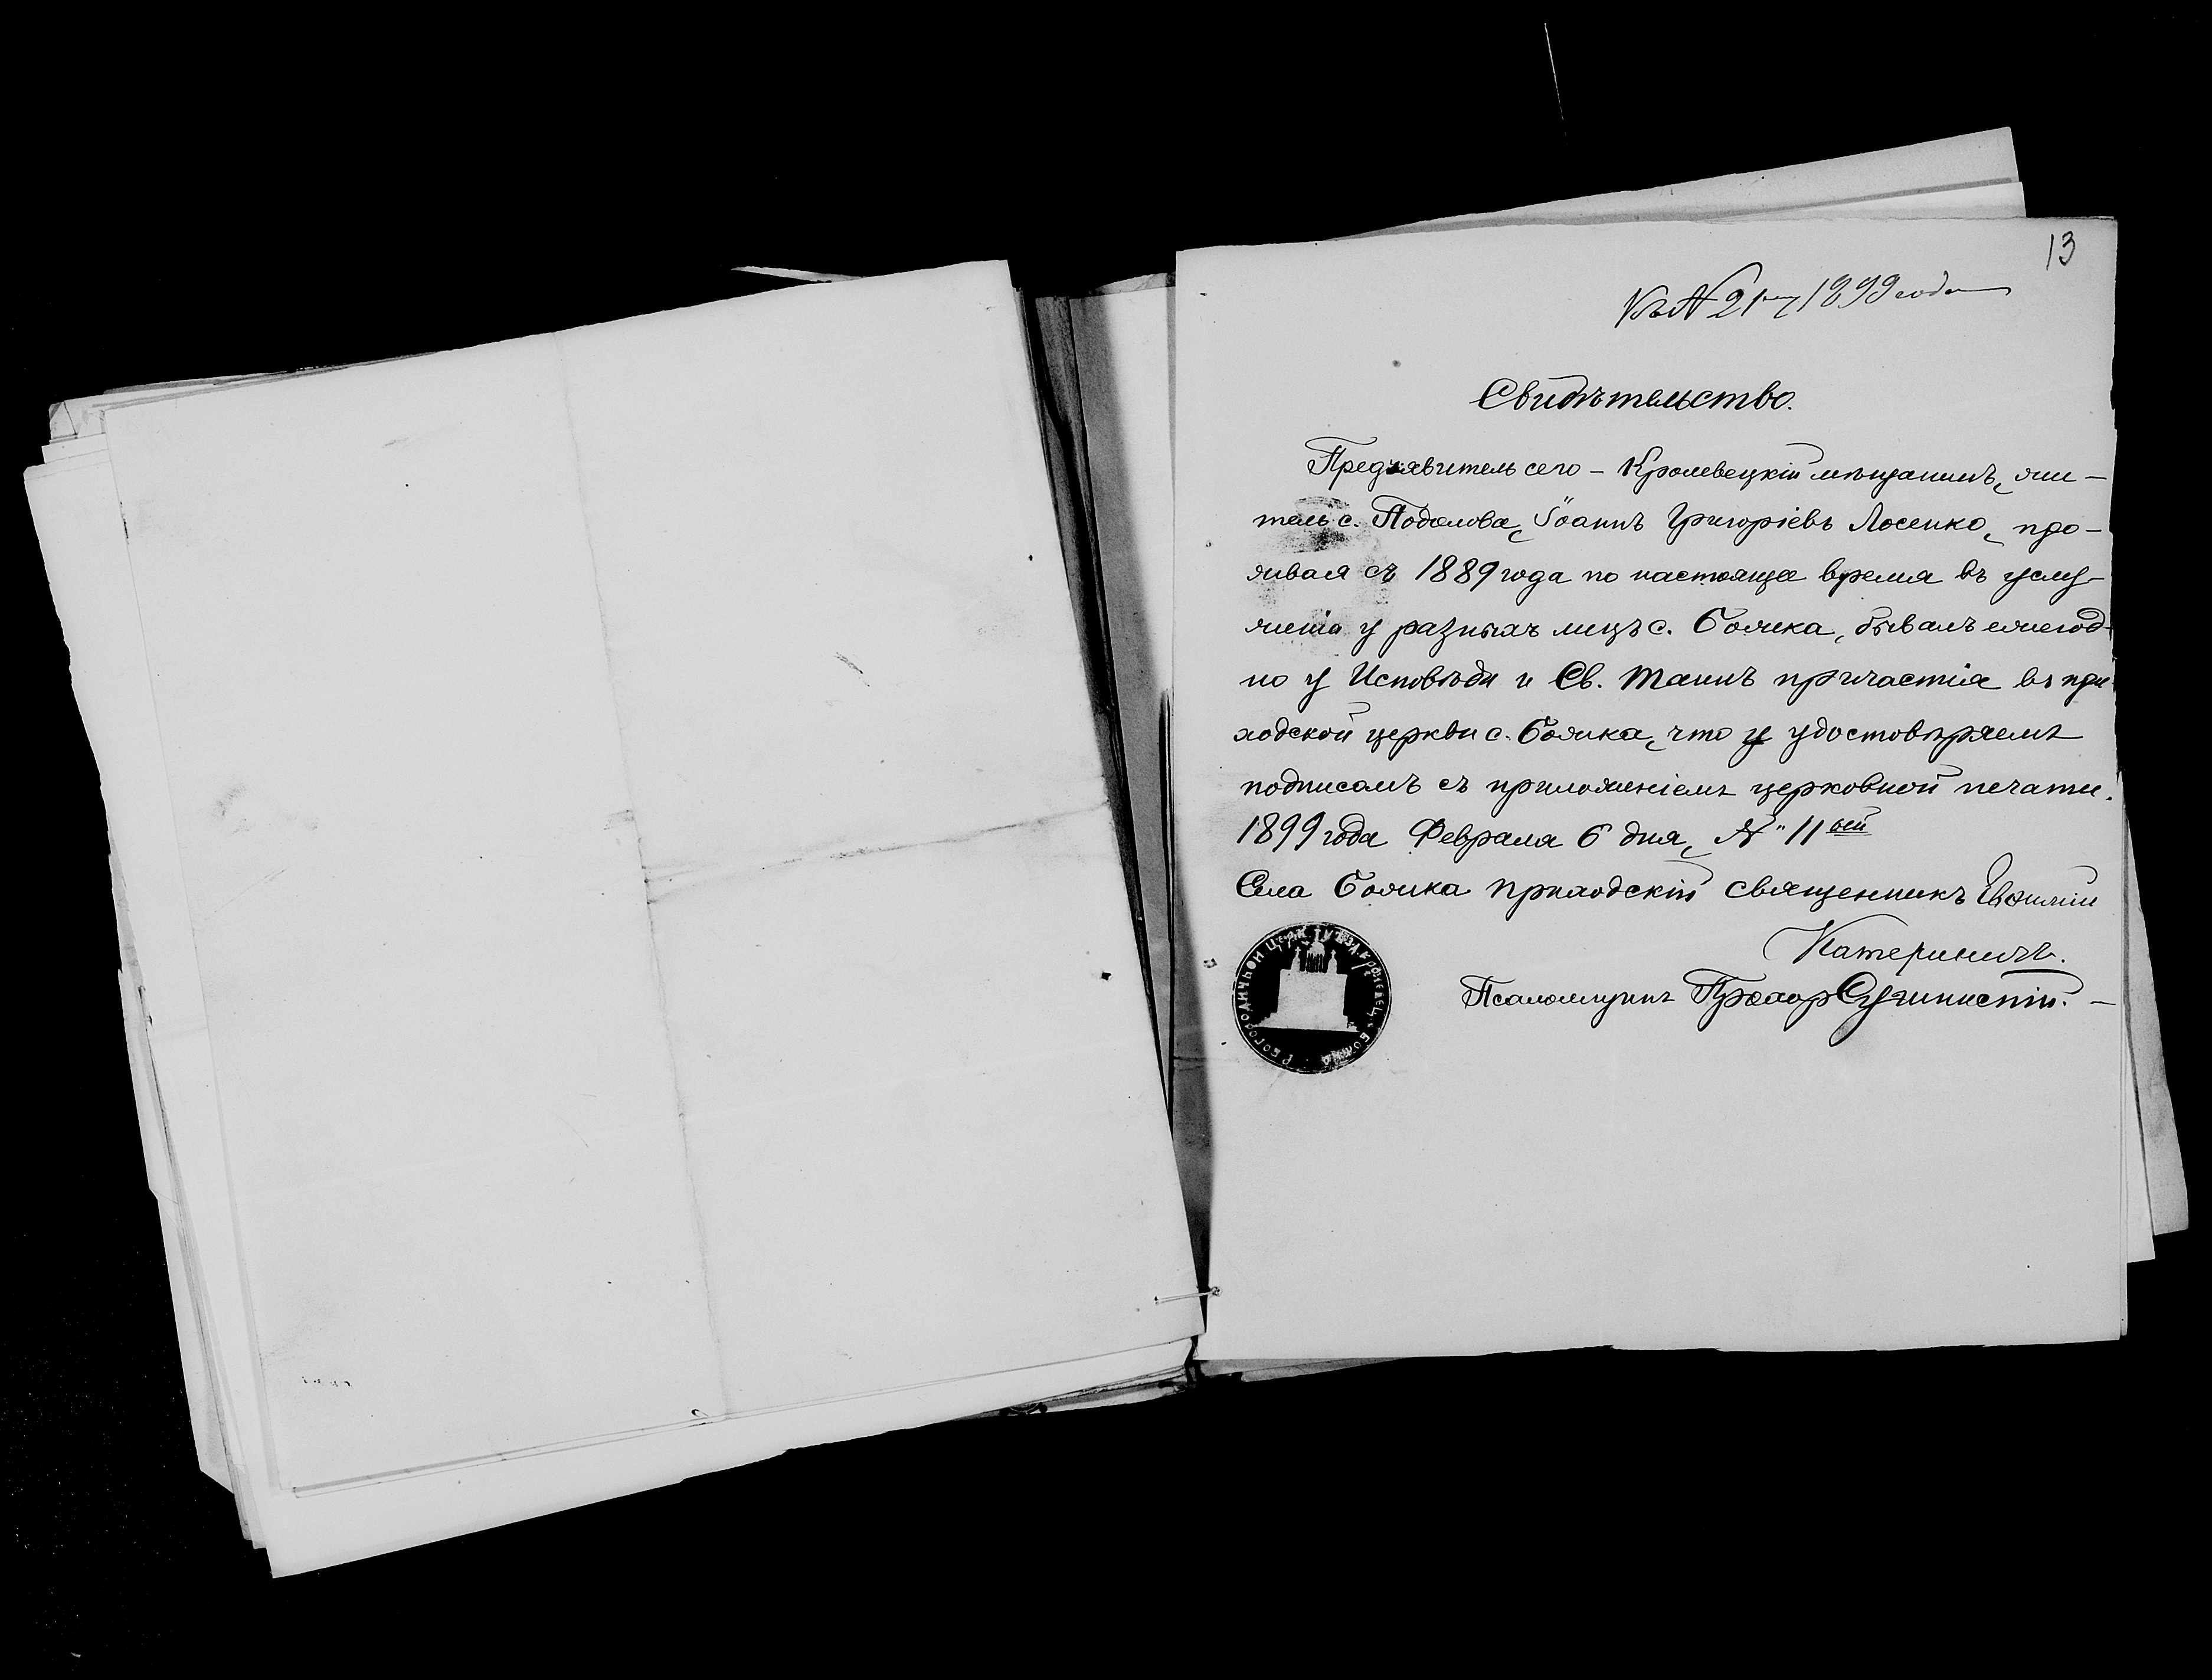 13
Къ № 21му 1899 года
Свидѣтельство.
Предъявитель сего – Кролевецкій мѣщанинъ, жи-
тель с. Подолова, Іоаннъ Григоріевъ Лосенко, про-
живая съ 1889 года по настоящее время въ услу-
женіи у разныхъ лицъ с. Божка, бывалъ ежегод-
но у Исповѣди и Св. Таинъ причастія въ при-
ходской церкви с. Божка, что и удостовѣряемъ
подписомъ съ приложеніемъ церковной печати.
1899 года Февраля 6 дня, № 11ый
Села Божка приходскій священникъ Евѳимій
Катериничъ.
Псаломщикъ Прохор